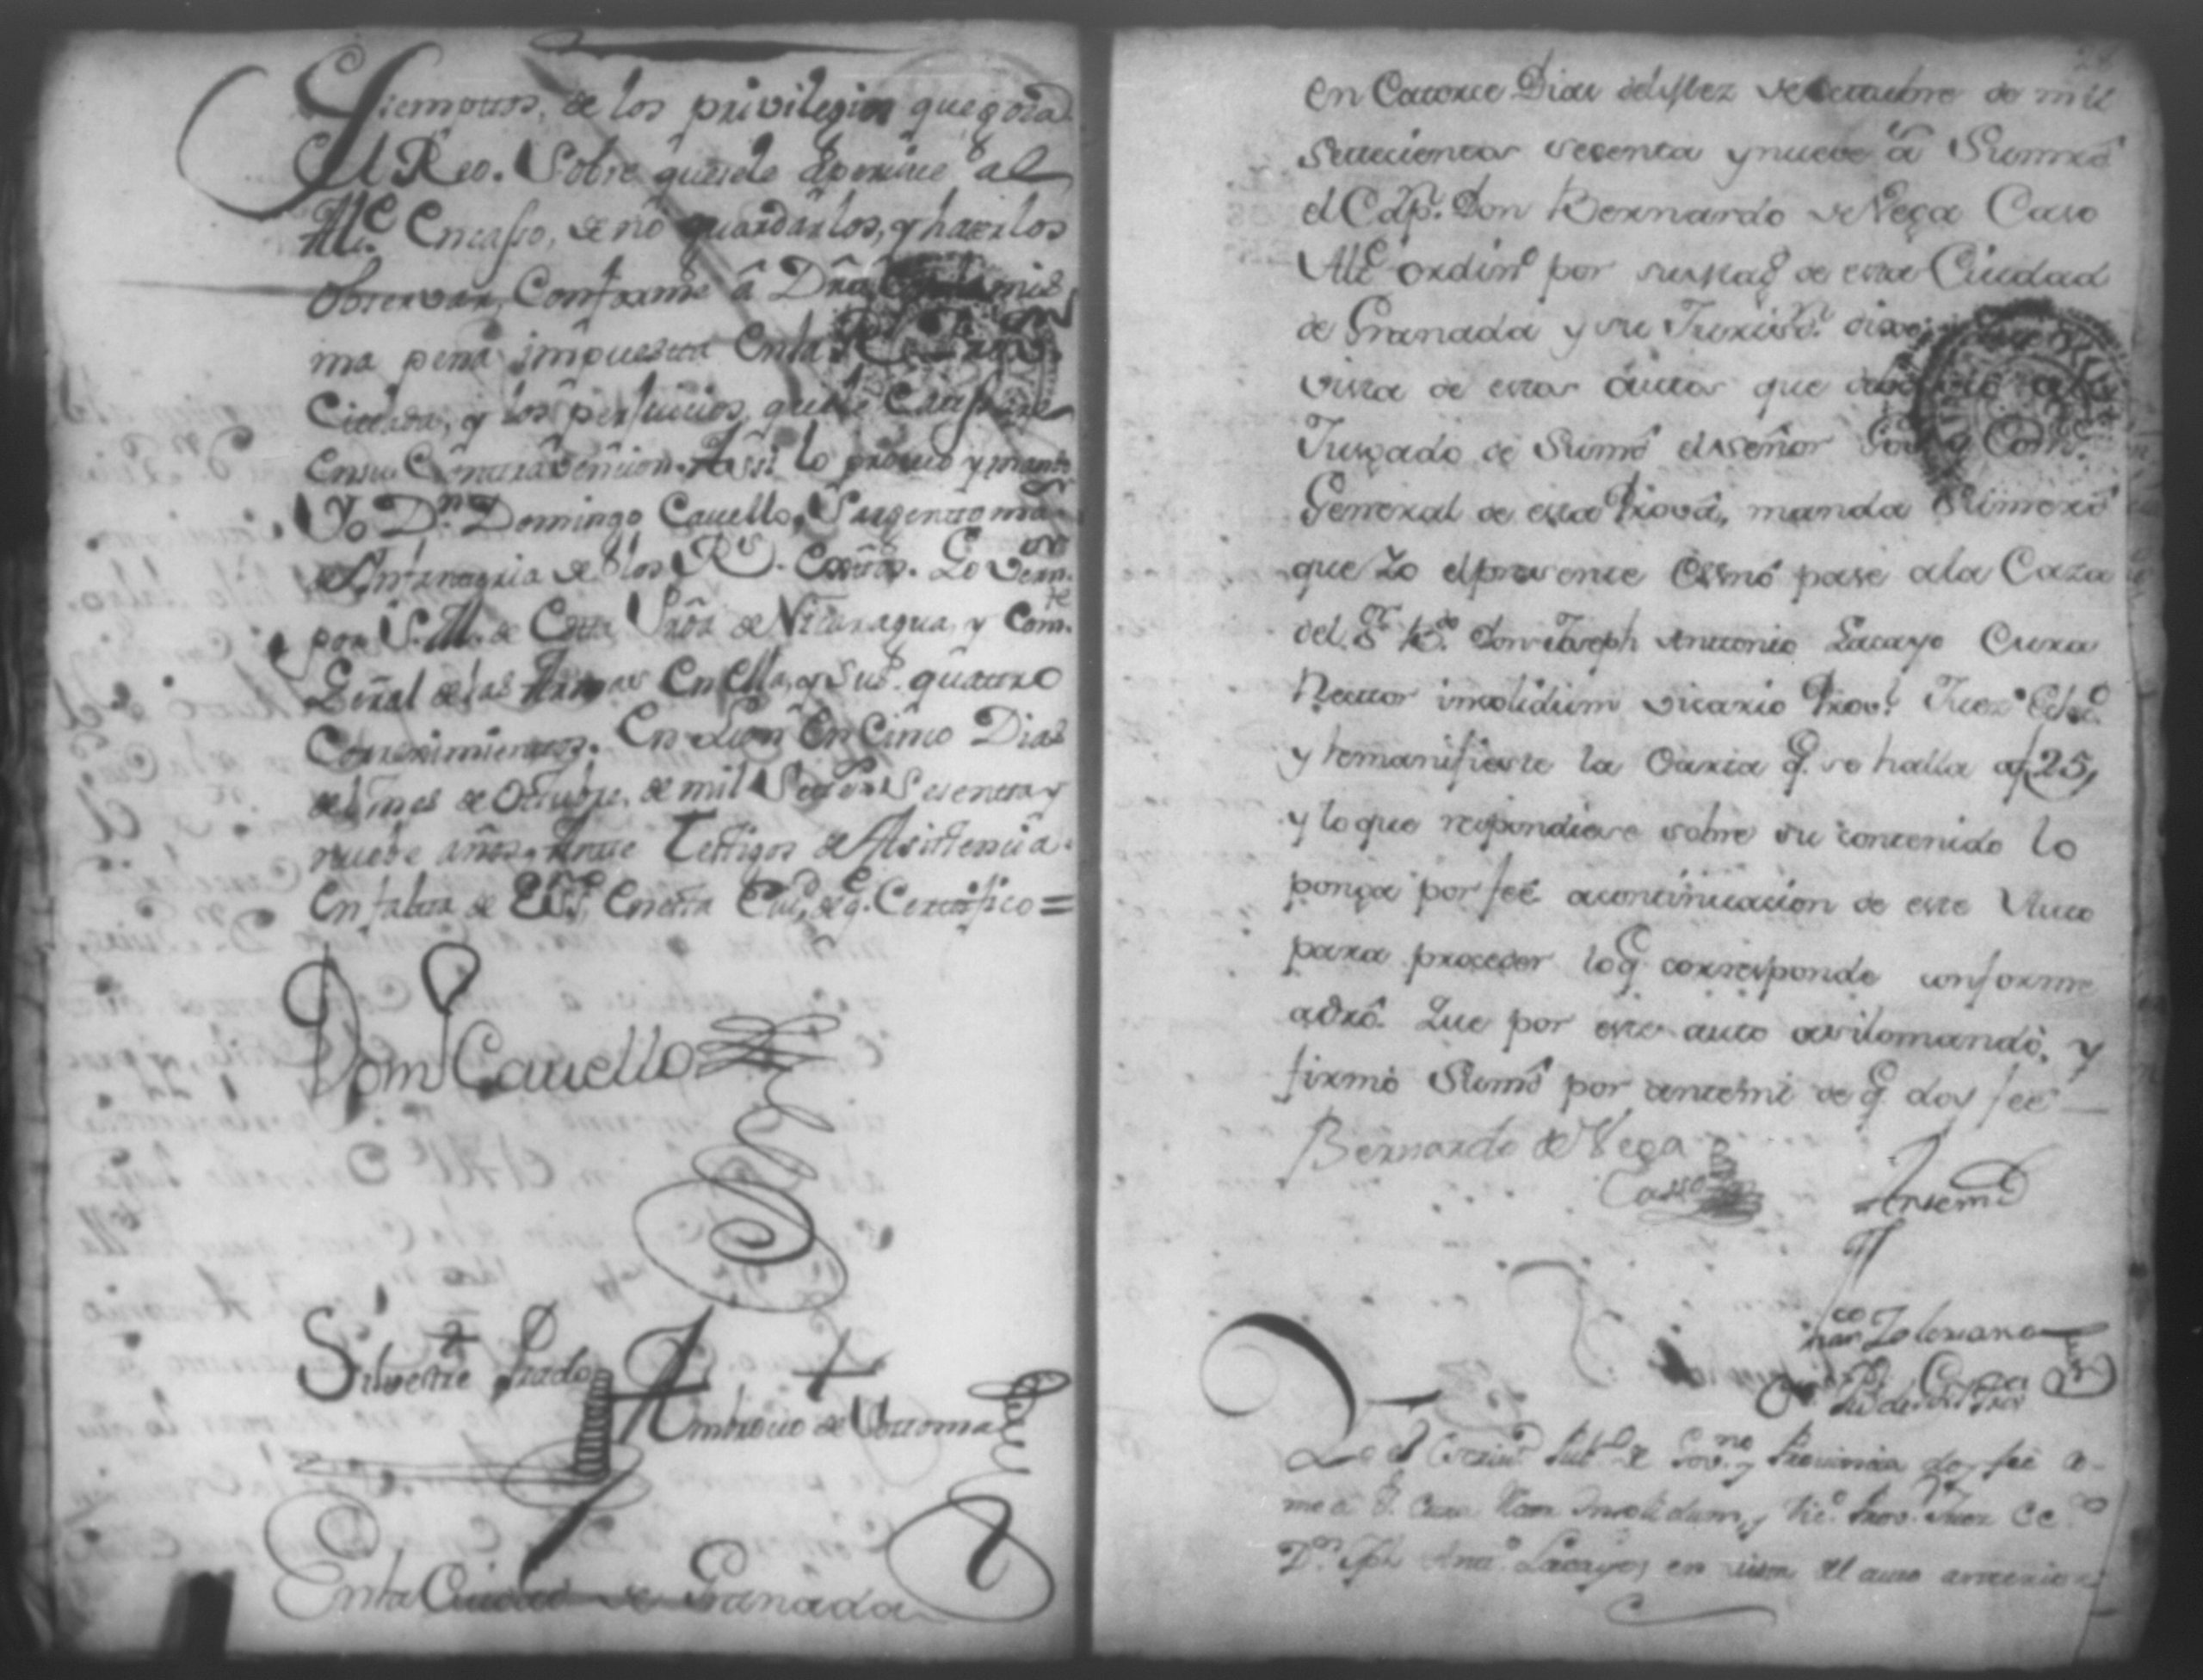 de los privilegios que goza
El Reo. Sobre que se le apercive al
Alce. En casso, de no guardarlos, y hacerlos
observar, Conforme â Dro
ma pena impuesta En la
Citada, y los perjuicios, que
En su Contravencion. Assi lo proveo y mando
Yo Dn. Domingo Cauello, Sargento mor.
de Infanteria de los Rs. Exttos. Govern.
por S. M. de Esta Prova de Nicaragua, y Comte.
General de las Armas En Ella, y sus quattro
Correximientos. En Leon En Cinco Dias
del mes de Octubre, de mil Settos. Sesenta y
nuebe años, Ante Testigos de Asistencia.
En falta de En esta Ciud, de q. Certifico =
Domo Cauello
Silvestre Prado
Ambrocio de
En la Ciudad de Granada
en Catorce Dias del Mez de Octubre de mil
Settecientos sesenta y nueve as Sumrd
el Capn. Don Bernardo de Vega Caso
Alce ordino por su Magd de esta Ciudad
de Granada y su Jurisdn. dixo
vista de estos autos que
Jusgado de Sumrd el señor Govr y Comte.
General de esta Prova, manda Sumerd
que Yo el presente Essno pase a la Caza
del Sr. Bdo. Don Joseph Antonio Lacayo Cura
Rector insolidum vicario Provl. Juez Ecleco
y le manifieste la Carta q. se halla af 25,
y lo que respondiese sobre su contenido lo
ponga por feé acontinuacion de este Auto
para proceder loq. corresponde conforme
adro. Que por este auto asilomandó, y
firmó Sumrd por antemi de q. doy feé
Bernardo de Vega
Casso
Antemi
Yo el Escrivo Pubco de Govno y Provincia doy feé
Cura Ror Insolidum, y Vico. Prov. Juez Ecco
Dn. Jph Anto. Lacayo, en vista del auto anterior